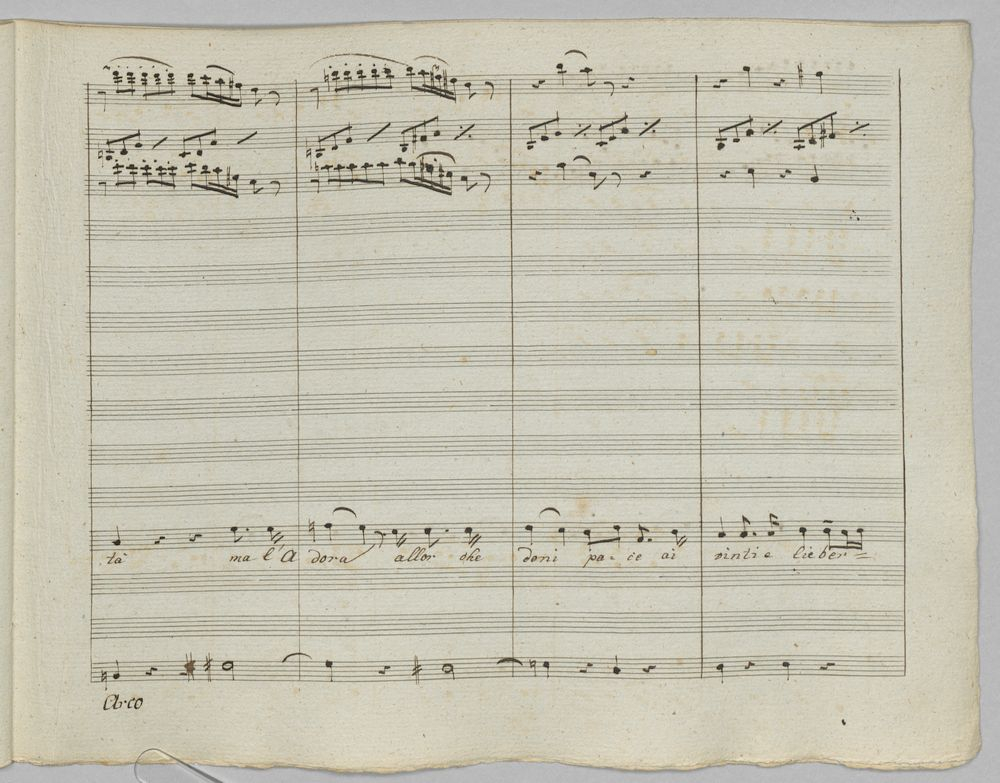 tà ma l'A dora allor che doni pa- ce ai vinti e li e ber=
Arco